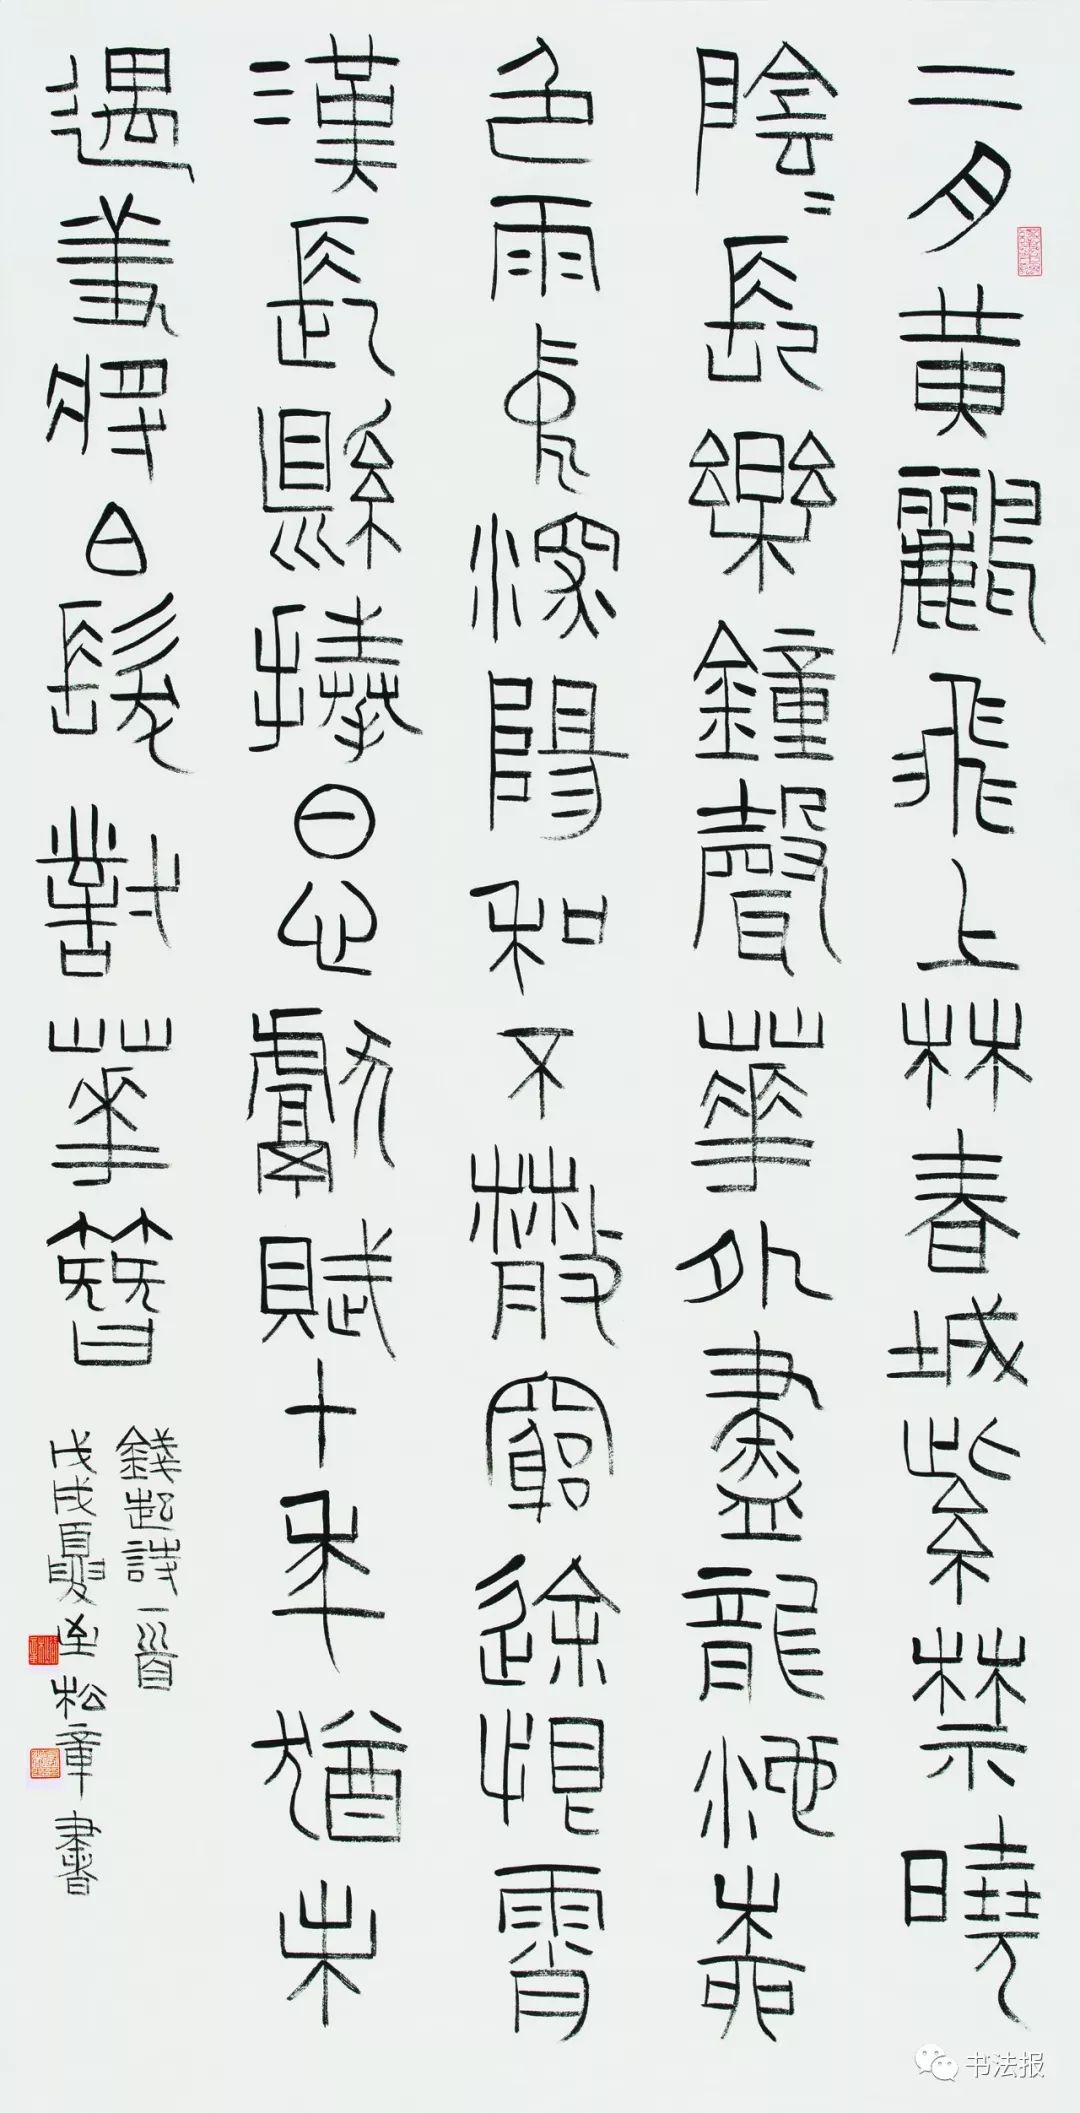 二月黃鸝飛上林春城紫禁曉
陰〻長樂鐘聲華外盡龍池柳
色雨中深陽和不散窮途恨霄
漢長縣捧日心獻賦十年猶未
遇羞將白髮對華簪
錢起詩一首
戊戌夏松章書
书法报